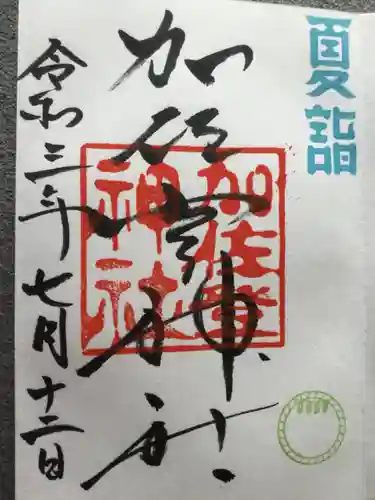 夏詣
加佐登神社
加佐登
神社
令和三年七月十二日